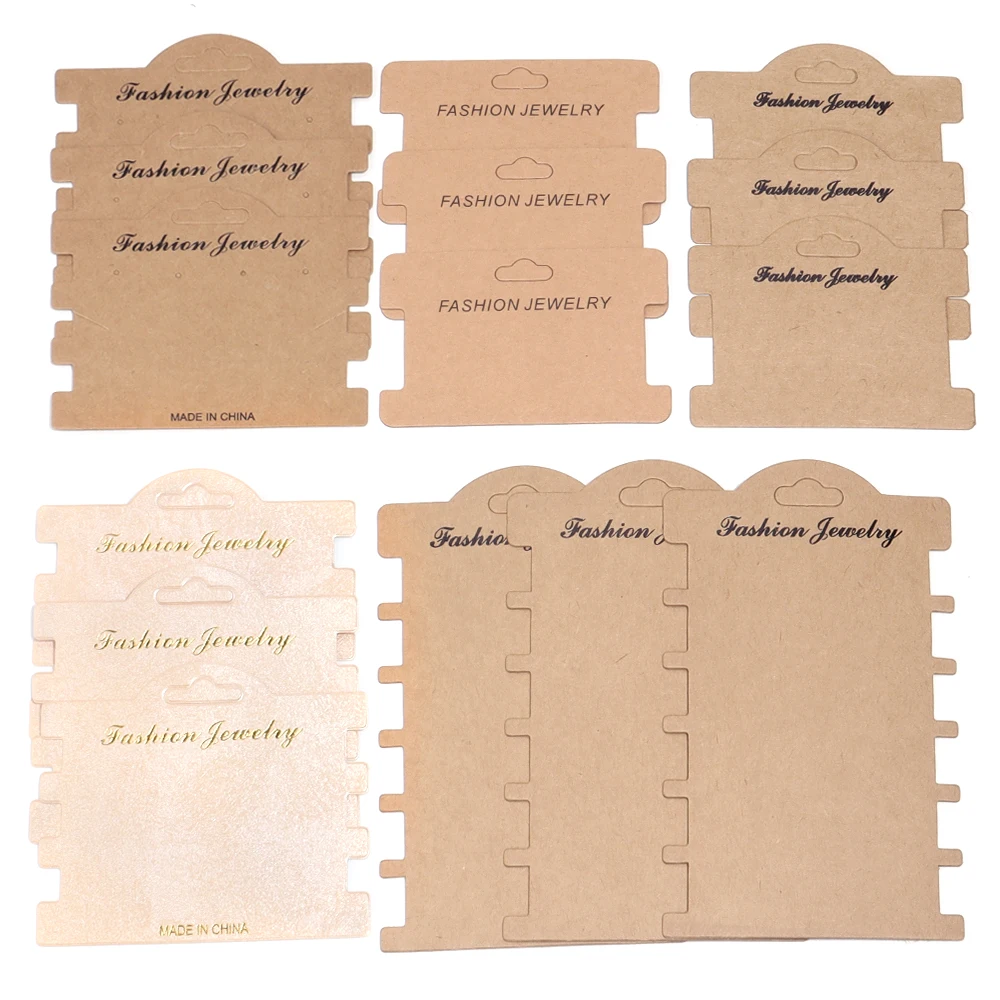 Fashion Jewelry
Fashion Jewelry
Fashion Jewelry
MADE IN CHINA
FASHION JEWELRY
FASHION JEWELRY
FASHION JEWELRY
Fashion Jewelry
Fashion Jewelry
Fashion Jewelry
Fashion Jewelry
Fashion Jewelry
Fashion Jewelry
MADE IN CHINA
Fashion
Fashion J
Fashion Jewelry